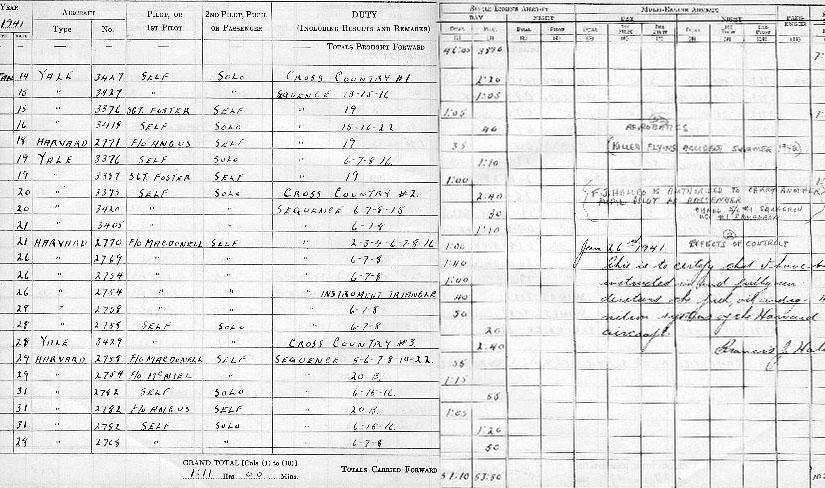 YEAR AIRCRAFT PILOT, OR 2ND PILOT, PUPIL DUTY
1941 Type No. 1ST PILOT OR PASSENGER (INCLUDING RESULTS AND REMARKS)
TOTALS BROUGHT FORWARD
JAN 14 YALE 3427 SELF SOLO CROSS COUNTRY #1
15 " 3427 " " SEQUENCE 13-15-16
15 " 3376 SGT. FOSTER SELF " 19
16 " 3419 SELF SOLO " 15-16-22
18 HARVARD 2771 F/O ANGUS SELF " 19
19 YALE 3376 SELF SOLO " 6-7-8-16
19 " SGT FOSTER SELF " 19
20 " SELF SOLO CROSS COUNTRY #2.
20 " 3420 " " SEQUENCE 6-7-8-15
21 " 3405 " "
21 HARVARD 2770 F/O MACDONELL SELF " 2-3-4-6-7-8-16
26 " 2769 " " " 6-7-8
26 " 2754 " " " 6-7-8
26 " 2754 " " " INSTRUMENT TRIANGLE
" 2758 " " "
28 " SELF SOLO " 6-7-8
28 YALE 3429 " " CROSS COUNTRY #3.
29 HARVARD 2758 F/O MACDONELL SELF SEQUENCE 5-6-7-8-10-22
29 " 2754 F/O MCNIEL " " 20 B.
31 " 2782 SELF SOLO " 6-15-16.
31 " 2782 F/O ANGUS SELF " 20 B.
31 " 2782 SELF SOLO " 6-15-16.
29 " 2768 " " " 6-7-8
GRAND TOTAL [Cols (1) to (10)]
111 Hrs 00 Mins.
TOTALS CARRIED FORWARD
SINGLE-ENGINE AIRCRAFT MULTI-ENGINE AIRCRAFT
DAY NIGHT DAY NIGHT
DUAL PILOT DUAL PILOT DUAL 1ST PILOT 2ND PILOT DUAL 1ST PILOT 2ND PILOT
(1) (2) (3) (4) (5) (6) (7) (8) (9) (10)
46:05
1:20
1:05
1:05
40 AEROBATICS
35 (KILLED FLYING ACCIDENT SUMMER
1:10
1:00
2:40 F.J. IS AUTHORIZED TO CARRY ANOTHER
PUPIL PILOT AS PASSENGER
30
1:10
1:00 Jan 26th 1941 EFFECTS OF CONTROLS
1:40 This is to certify that I have
1:00 instructed in and fully
40 the fuel, oil and
50 system of the Harvard
20 aircraft.
2:40 Francis J.
55
1:15
55
1:05
1:20
50
51:10 53:50